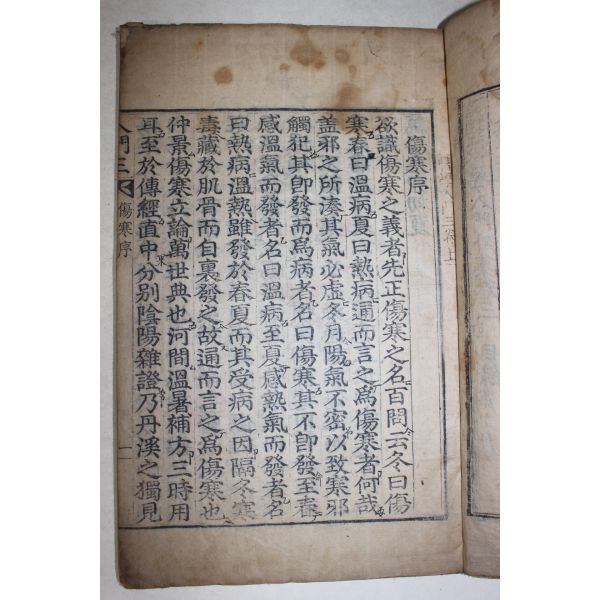 傷寒序
欲識傷寒之義者先正傷寒之名百問云冬曰傷
寒春曰溫病夏曰熱病通而言之爲傷寒者何哉
盖邪之所湊其氣必虛冬月陽氣不密以致寒邪
觸犯其卽發而爲病者名曰傷寒其不卽發至春
感溫氣而發者名曰溫病至夏感熱氣而發者名
曰熱病溫熱雖發於春夏而其受病之因隔冬寒
毒藏於肌骨而自裏發之故通而言之爲傷寒也
仲景傷寒立論萬世典也河間溫暑補方三時用
耳至於傳經直中分別陰陽雜證乃丹溪之獨見
入門三
傷寒序
一